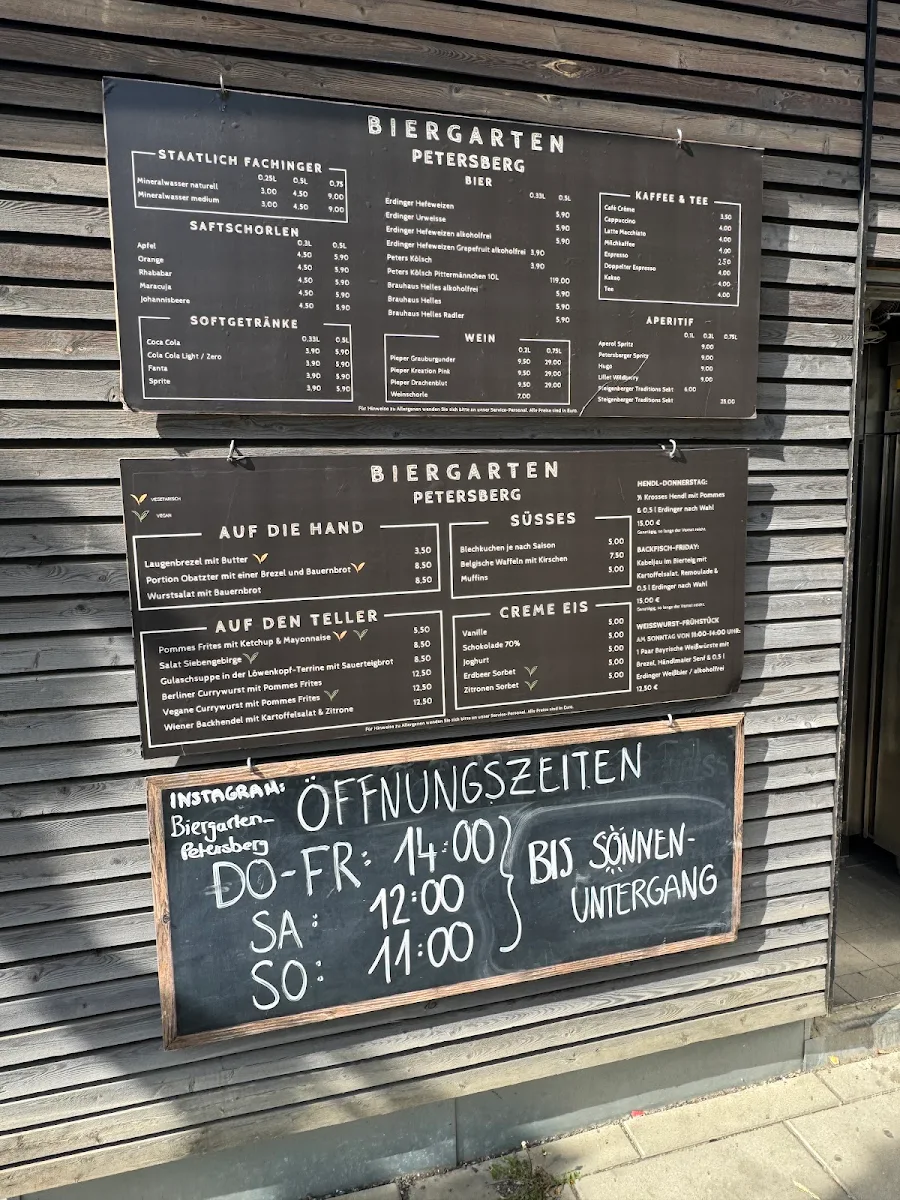 BIERGARTEN
PETERSBERG
STAATLICH FACHINGER
0,25L 0,5L 0,75
Mineralwasser naturell 3,00 4,50 9,00
Mineralwasser medium 3,00 4,50 9,00
SAFTSCHORLEN
0,3L 0,5L
Apfel 4,50 5,90
Orange 4,50 5,90
Rhababar 4,50 5,90
Maracuja 4,50 5,90
Johannisbeere 4,50 5,90
SOFTGETRÄNKE
0,33L 0,5L
Coca Cola 3,90 5,90
Cola Cola Light / Zero 3,90 5,90
Fanta 3,90 5,90
Sprite 3,90 5,90
BIER
0,33L 0,5L
Erdinger Hefeweizen 5,90
Erdinger Urweisse 5,90
Erdinger Hefeweizen alkoholfrei 5,90
Erdinger Hefeweizen Grapefruit alkoholfrei 3,90
Peters Kölsch 3,90
Peters Kölsch Pittermännchen 10L 119,00
Brauhaus Helles alkoholfrei 5,90
Brauhaus Helles 5,90
Brauhaus Helles Radler 5,90
WEIN
0,2L 0,75L
Pieper Grauburgunder 9,50 29,00
Pieper Kreation Pink 9,50 29,00
Pieper Drachenblut 9,50 29,00
Weinschorle 7,00
KAFFEE & TEE
Café Crème 3,50
Cappuccino 4,00
Latte Macchiato 4,00
Milchkaffee 4,00
Espresso 2,50
Doppelter Espresso 4,00
Kakao 4,00
Tee 4,00
APERITIF
0,1L 0,2L 0,75L
Aperol Spritz 9,00
Petersberger Spritz 9,00
Hugo 9,00
Lillet Wildberry 9,00
Steigenberger Traditions Sekt 6,00
Steigenberger Traditions Sekt 35,00
Für Hinweise zu Allergenen wenden Sie sich bitte an unser Service-Personal. Alle Preise sind in Euro.
BIERGARTEN
PETERSBERG
VEGETARISCH
VEGAN
AUF DIE HAND
Laugenbrezel mit Butter 3,50
Portion Obatzter mit einer Brezel und Bauernbrot 8,50
Wurstsalat mit Bauernbrot 8,50
AUF DEN TELLER
Pommes Frites mit Ketchup & Mayonnaise 5,50
Salat Siebengebirge 8,50
Gulaschsuppe in der Löwenkopf-Terrine mit Sauerteigbrot 8,50
Berliner Currywurst mit Pommes Frites 12,50
Vegane Currywurst mit Pommes Frites 12,50
Wiener Backhendel mit Kartoffelsalat & Zitrone 12,50
SÜSSES
Blechkuchen je nach Saison 5,00
Belgische Waffeln mit Kirschen 7,50
Muffins 5,00
CREME EIS
Vanille 5,00
Schokolade 70% 5,00
Joghurt 5,00
Erdbeer Sorbet 5,00
Zitronen Sorbet 5,00
HENDL-DONNERSTAG:
½ Krosses Hendl mit Pommes
& 0,5 l Erdinger nach Wahl
15,00 €
Ganztägig, so lange der Vorrat reicht.
BACKFISCH-FRIDAY:
Kabeljau im Bierteig mit
Kartoffelsalat, Remoulade &
0,5 l Erdinger nach Wahl
15,00 €
Ganztägig, so lange der Vorrat reicht.
WEISSWURST-FRÜHSTÜCK
AM SONNTAG VON 11:00-14:00 UHR:
1 Paar Bayrische Weißwürste mit
Brezel, Händlmaier Senf & 0,5 l
Erdinger Weißbier / alkoholfrei
12,50 €
Für Hinweise zu Allergenen wenden Sie sich bitte an unser Service-Personal. Alle Preise sind in Euro.
INSTAGRAM:
Biergarten_
Petersberg
ÖFFNUNGSZEITEN
DO-FR: 14:00
SA: 12:00
SO: 11:00
BIS SONNEN-
UNTERGANG